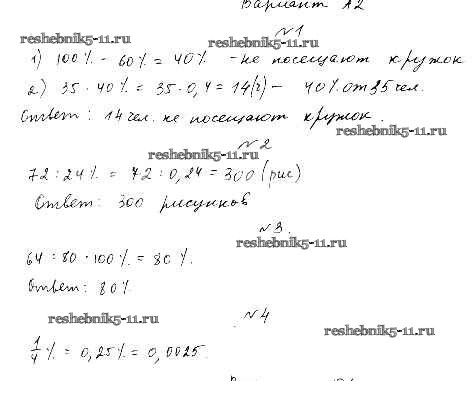 Вариант А2
№1
reshebnik5-11.ru reshebnik5-11.ru
1) 100% - 60% = 40% - не посещают кружок
2) 35 · 40% = 35 · 0,4 = 14(ч) - 40% от 35 чел.
Ответ: 14 чел. не посещают кружок.
reshebnik5-11.ru
№2
reshebnik5-11.ru
72 : 24% = 72 : 0,24 = 300 (рис)
Ответ: 300 рисунков
№3.
reshebnik5-11.ru
64 : 80 · 100% = 80%.
Ответ: 80%
№4
reshebnik5-11.ru reshebnik5-11.ru
1/4 % = 0,25% = 0,0025.